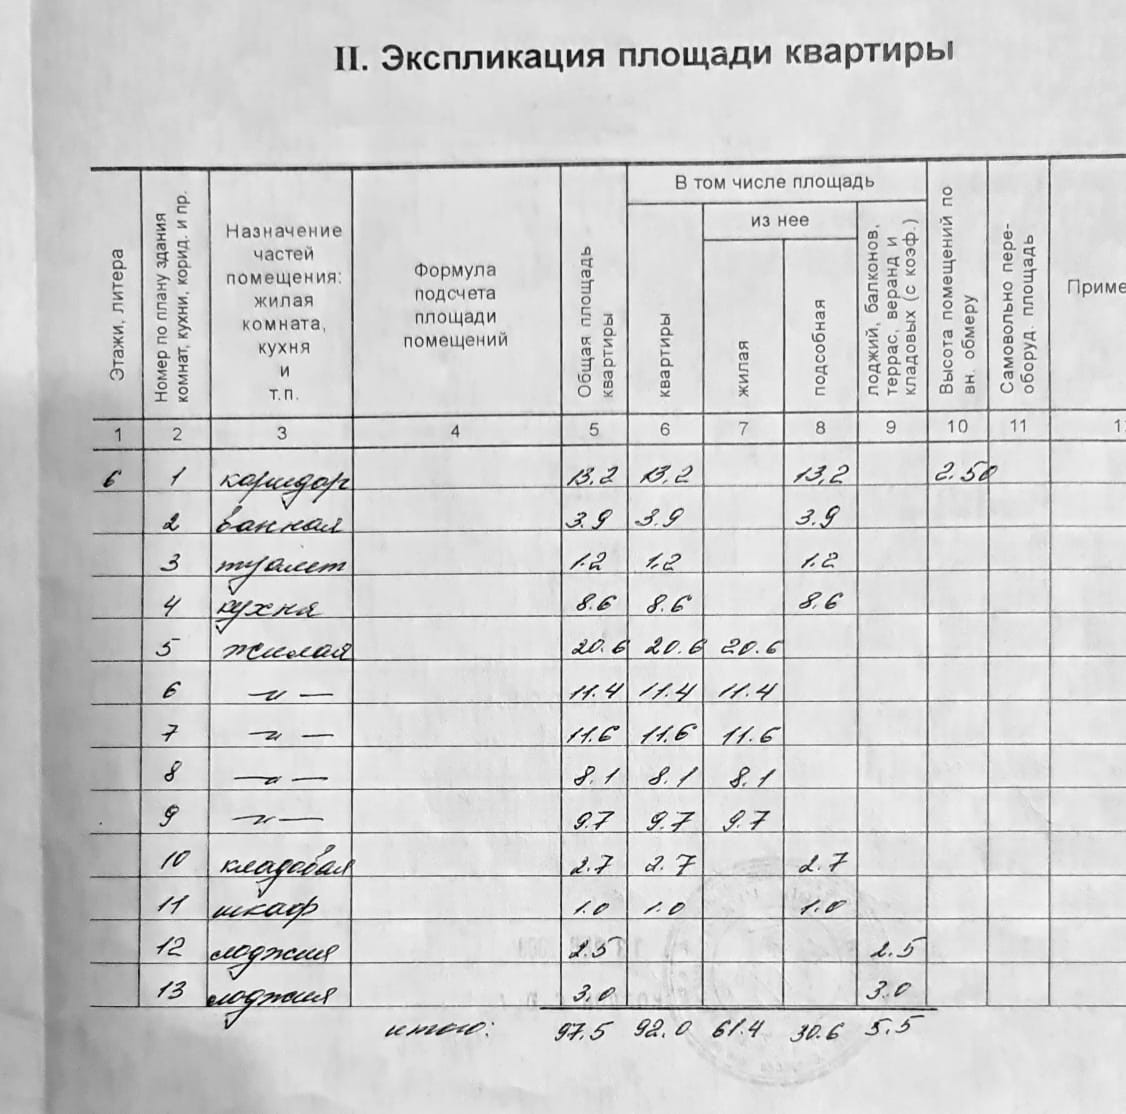 II. Экспликация площади квартиры
Этажи, литера
Номер по плану здания комнат, кухни, корид. и пр.
Назначение частей помещения: жилая комната, кухня и т.п.
Формула подсчета площади помещений
Общая площадь квартиры
В том числе площадь
квартиры
из нее
жилая
подсобная
лоджий, балконов, террас, веранд и кладовых (с коэф.)
Высота помещений по вн. обмеру
Самовольно пере-оборуд. площадь
Приме
1 2 3 4 5 6 7 8 9 10 11 1
6 1 коридор 13.2 13.2 13,2 2.50
2 ванная 3.9 3.9 3.9
3 туалет 1.2 1.2 1.2
4 кухня 8.6 8.6 8.6
5 жилая 20.6 20.6 20.6
6 —„— 11.4 11.4 11.4
7 —„— 11.6 11.6 11.6
8 —„— 8.1 8.1 8.1
9 —„— 9.7 9.7 9.7
10 кладовая 2.7 2.7 2.7
11 шкаф 1.0 1.0 1.0
12 лоджия 2.5 2.5
13 лоджия 3.0 3.0
итого: 97.5 92.0 61.4 30.6 5.5